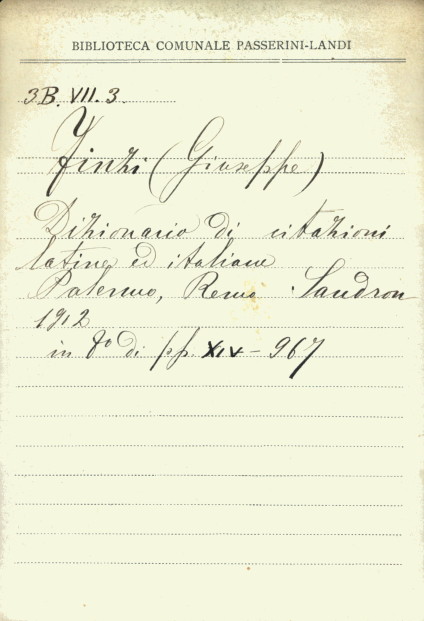 BIBLIOTECA COMUNALE PASSERINI-LANDI
3B. VII. 3.
Finzi (Giuseppe)
Dizionario di citazioni
latine ed italiane
Palermo, Remo Sandron
1912
in 8º di pp. XIV - 967